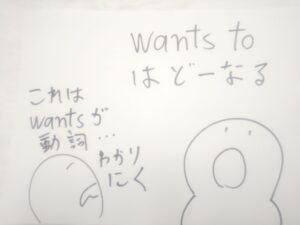 wants to
はどーなる
これは
wantsが
動詞…
わかり
にく